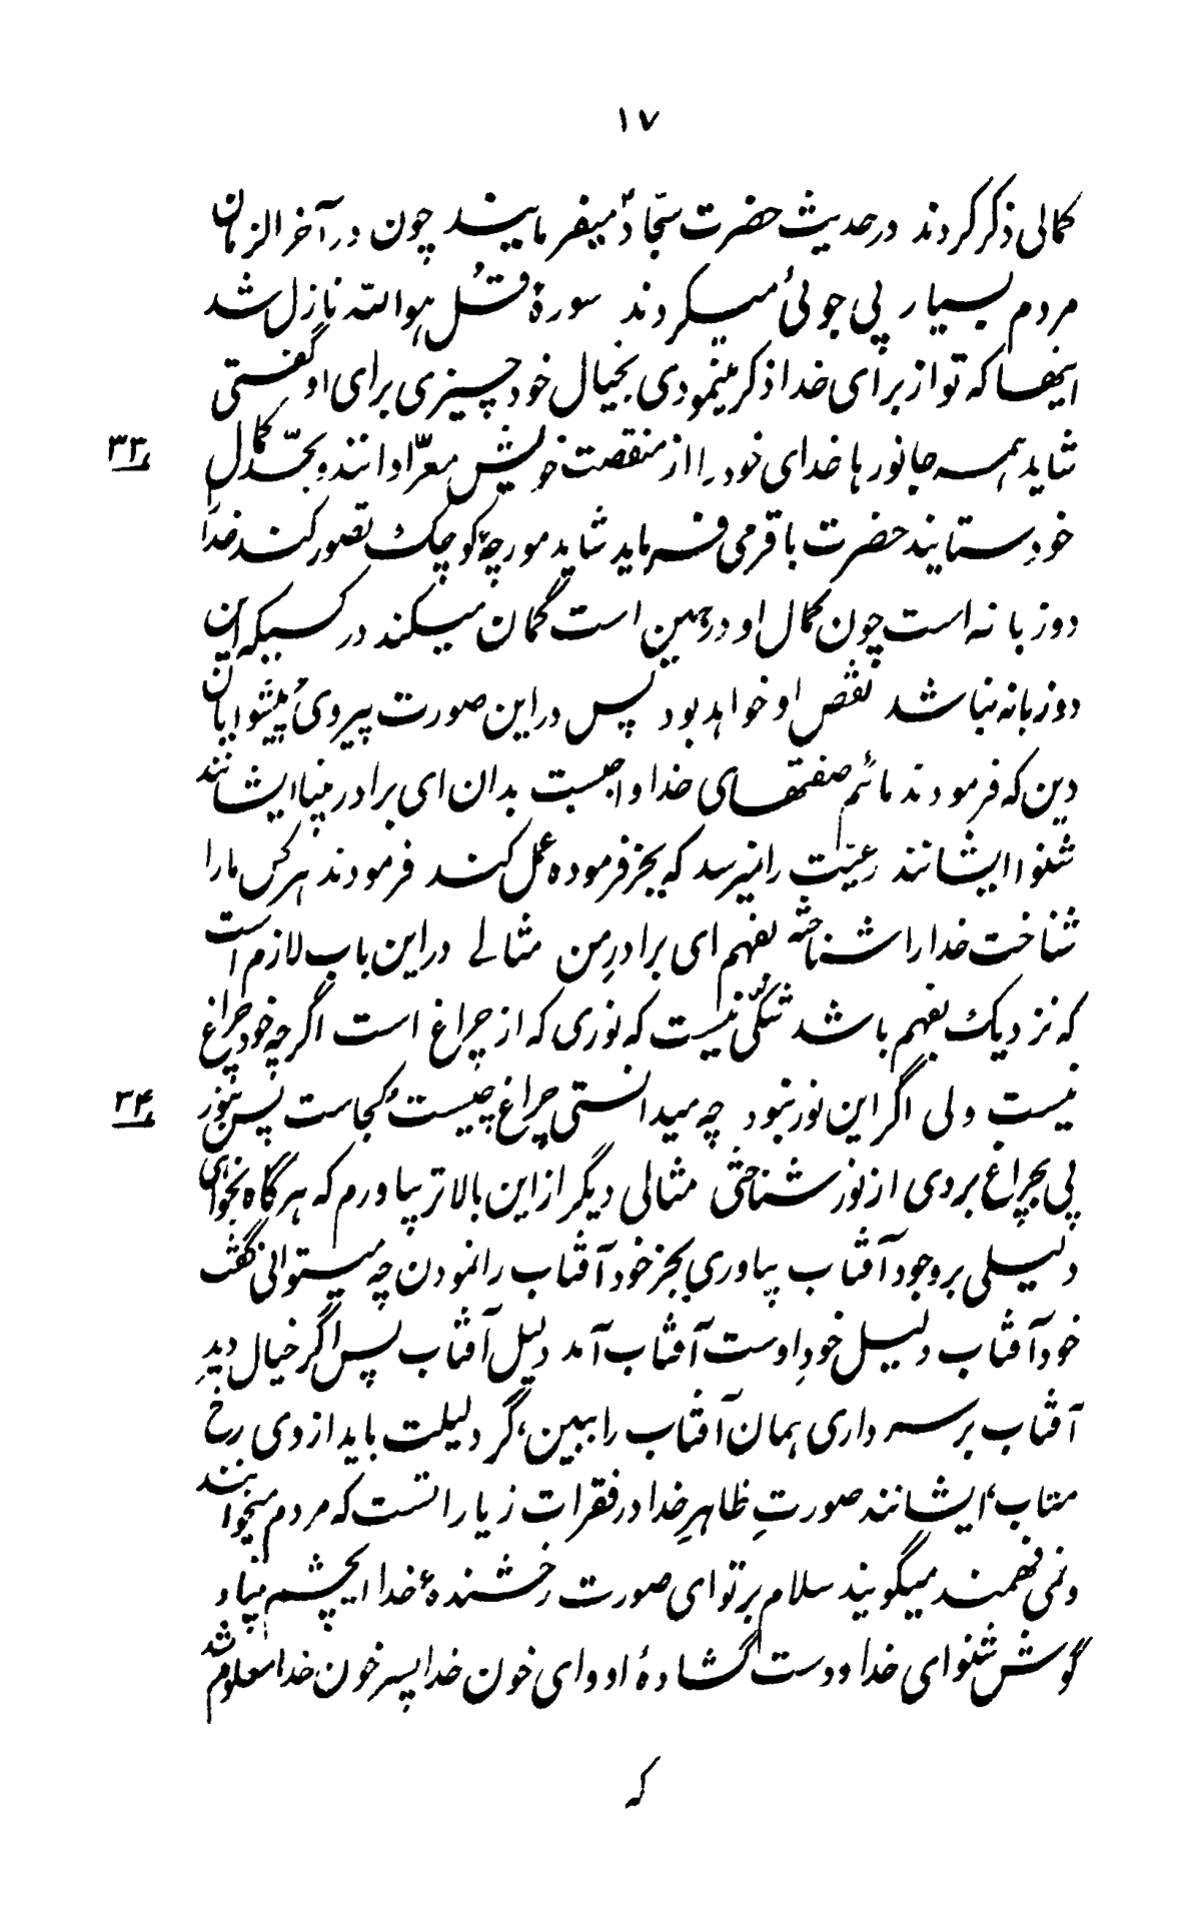 ۱۷
کمالی ذکر کردند در حدیث حضرت سجّاد میفرمایند چون در آخر الزمان
مردم بسیار پی جوئی میکردند سورهٔ قُل هو الله نازل شد
اینها که تو از برای خدا ذکر مینمودی بخیال خود چیزی برای او گفتی
۳۳
شاید همه جانورها خدای خود را از منقصت خویش معرّا دانند و بحدّ کمال
خود ستایند حضرت باقر می فرماید شاید مورچهٔ کوچک تصور کند خدا
دوزبانه است چون کمال او در همین است گمان میکند در کسیکه این
دوزبانه نباشد نقص او خواهد بود پس در این صورت پیروی پیشوایان
دین که فرمودند مائیم صفتهای خدا واجبست بدان ای برادر بینا ایشانند
شنوا ایشانند رعیّت را نمیرسد که بجز فرموده عمل کند فرمودند هر کس مارا
شناخت خدا را شناخته بفهم ای برادرِ من مثالے در این باب لازم است
که نزدیک بفهم باشد شکّی نیست که نوری که از چراغ است اگرچه خود چراغ
۳۴
نیست ولی اگر این نور نبود چه میدانستی چراغ چیست و کجاست پس بنور
پی بچراغ بردی از نور شناختی مثالی دیگر از این بالاتر بیاورم که هرگاه بخواهی
دلیلی بر وجود آفتاب بیاوری بجز خود آفتاب را نمودن چه میتوانی گفت
خود آفتاب دلیل خودِ اوست آفتاب آمد دلیل آفتاب پس اگر خیال دیدِ
آفتاب بر سر داری همان آفتاب را ببین، گر دلیلت باید از وی رخ
متاب، ایشانند صورتِ ظاهرِ خدا در فقرات زیاراتست که مردم میخوانند
و نمی فهمند میگویند سلام بر تو ای صورت رخشندهٔ خدا ایچشم بینا و
گوش شنوای خدا و دست گشادهٔ او و ای خون خدا پسر خون خدا معلوم شد
که